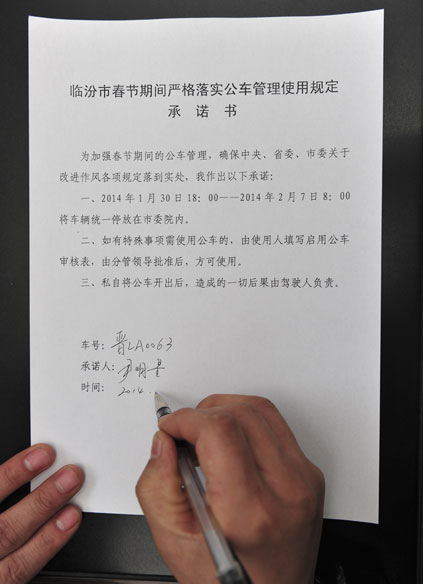 临汾市春节期间严格落实公车管理使用规定
承 诺 书
为加强春节期间的公车管理，确保中央、省委、市委关于
改进作风各项规定落到实处，我作出以下承诺：
一、2014年1月30日18：00——2014年2月7日8：00
将车辆统一停放在市委院内。
二、如有特殊事项需使用公车的，由使用人填写启用公车
审核表，由分管领导批准后，方可使用。
三、私自将公车开出后，造成的一切后果由驾驶人负责。
车号：晋LA0063
承诺人：尹明星
时间：2014.